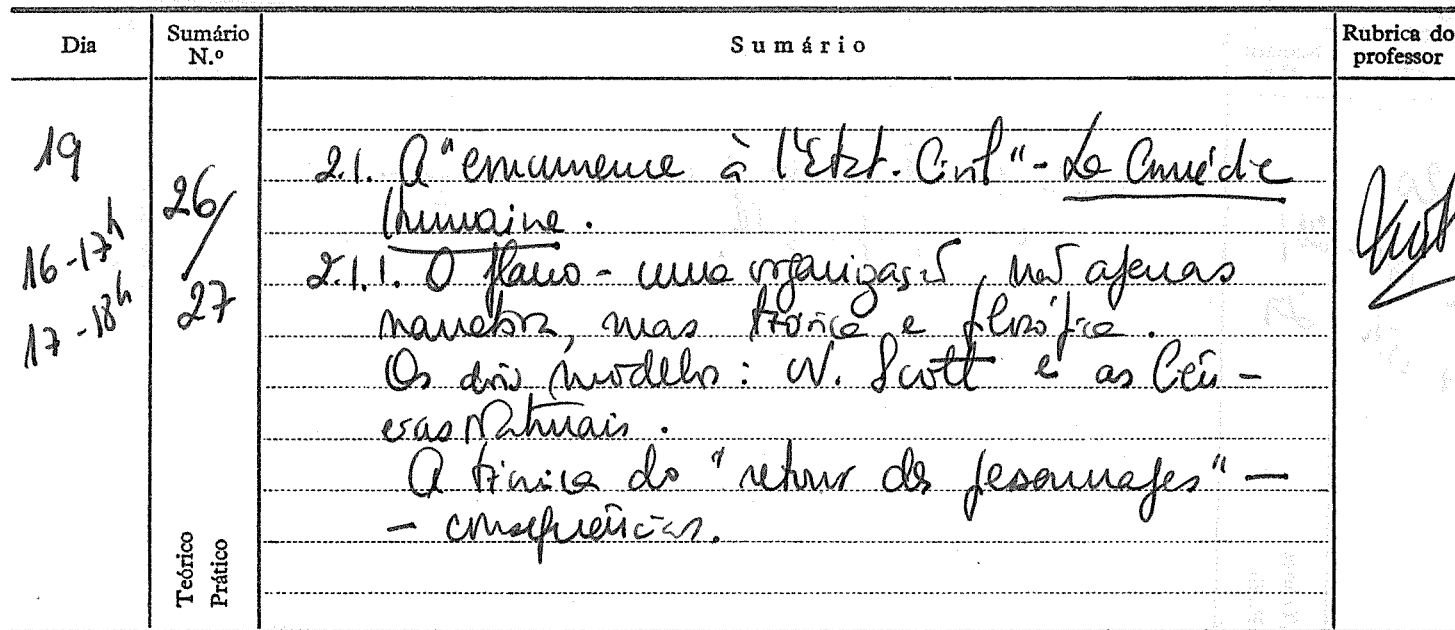 Dia
Sumário N.º
Sumário
Rubrica do professor
19
16-17h
17-18h
26/
27
Teórico
Prático
2.1. A "concurrence à l'État-Civil" - La Comédie
humaine.
2.1.1. O plano - uma organização, não apenas
narrativa, mas teórica e filosófica.
Os dois modelos: W. Scott e as Ciên-
cias Naturais.
A técnica do "retour des personnages" -
- consequências.